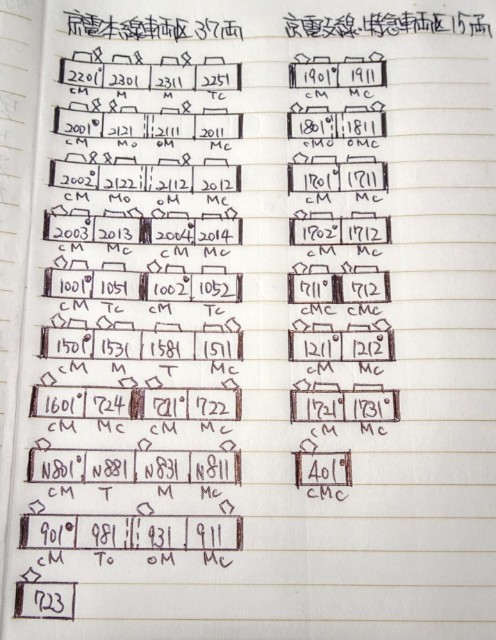 京電本線車両区 37両
2201 2301 2311 2251
cM M M Tc
2001 2121 2111 2011
cM Mo oM Mc
2002 2122 2112 2012
cM Mo oM Mc
2003 2013 2004 2014
cM Mc cM Mc
1001 1051 1002 1052
cM Tc cM Tc
1501 1531 1581 1511
cM M T Mc
1601 724 721 722
cM Mc cM Mc
N801 N881 N831 N811
cM T M Mc
901 981 931 911
cM To oM Mc
723
京電支線・特急車両区 15両
1901 1911
cM Mc
1801 1811
cMo oMc
1701 1711
cM Mc
1702 1712
cM Mc
711 712
cMc cMc
1211 1212
cM Mc
1721 1731
cM Mc
401
cMc